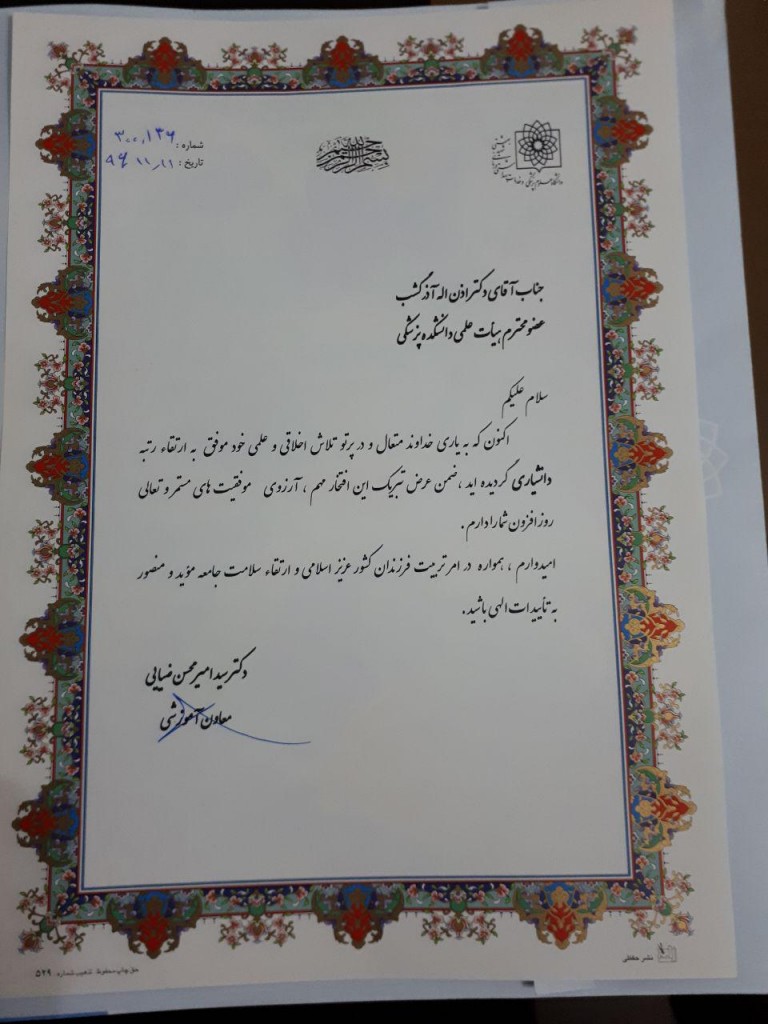 بسم الله الرحمن الرحیم
شماره :
تاریخ : ۹۶ ۱۱٫۱۱
دانشگاه علوم پزشکی و خدمات
جناب آقای دکتر اذن اله آذرگشب
عضو محترم هیأت علمی دانشکده پزشکی
سلام علیکم
اکنون که به یاری خداوند متعال و در پرتو تلاش اخلاقی و علمی خود موفق به ارتقاء رتبه
دانشیاری گردیده اید ، ضمن عرض تبریک این افتخار مهم ، آرزوی موفقیت های مستمر و تعالی
روز افزون شما را دارم .
امیدوارم ، همواره در امر تربیت فرزندان کشور عزیز اسلامی و ارتقاء سلامت جامعه مؤید و منصور
به تأییدات الهی باشید .
دکتر سید امیر محسن ضیایی
معاون آموزشی
نشر حفظی
حق چاپ محفوظ تذهیب شماره ۵۲۹